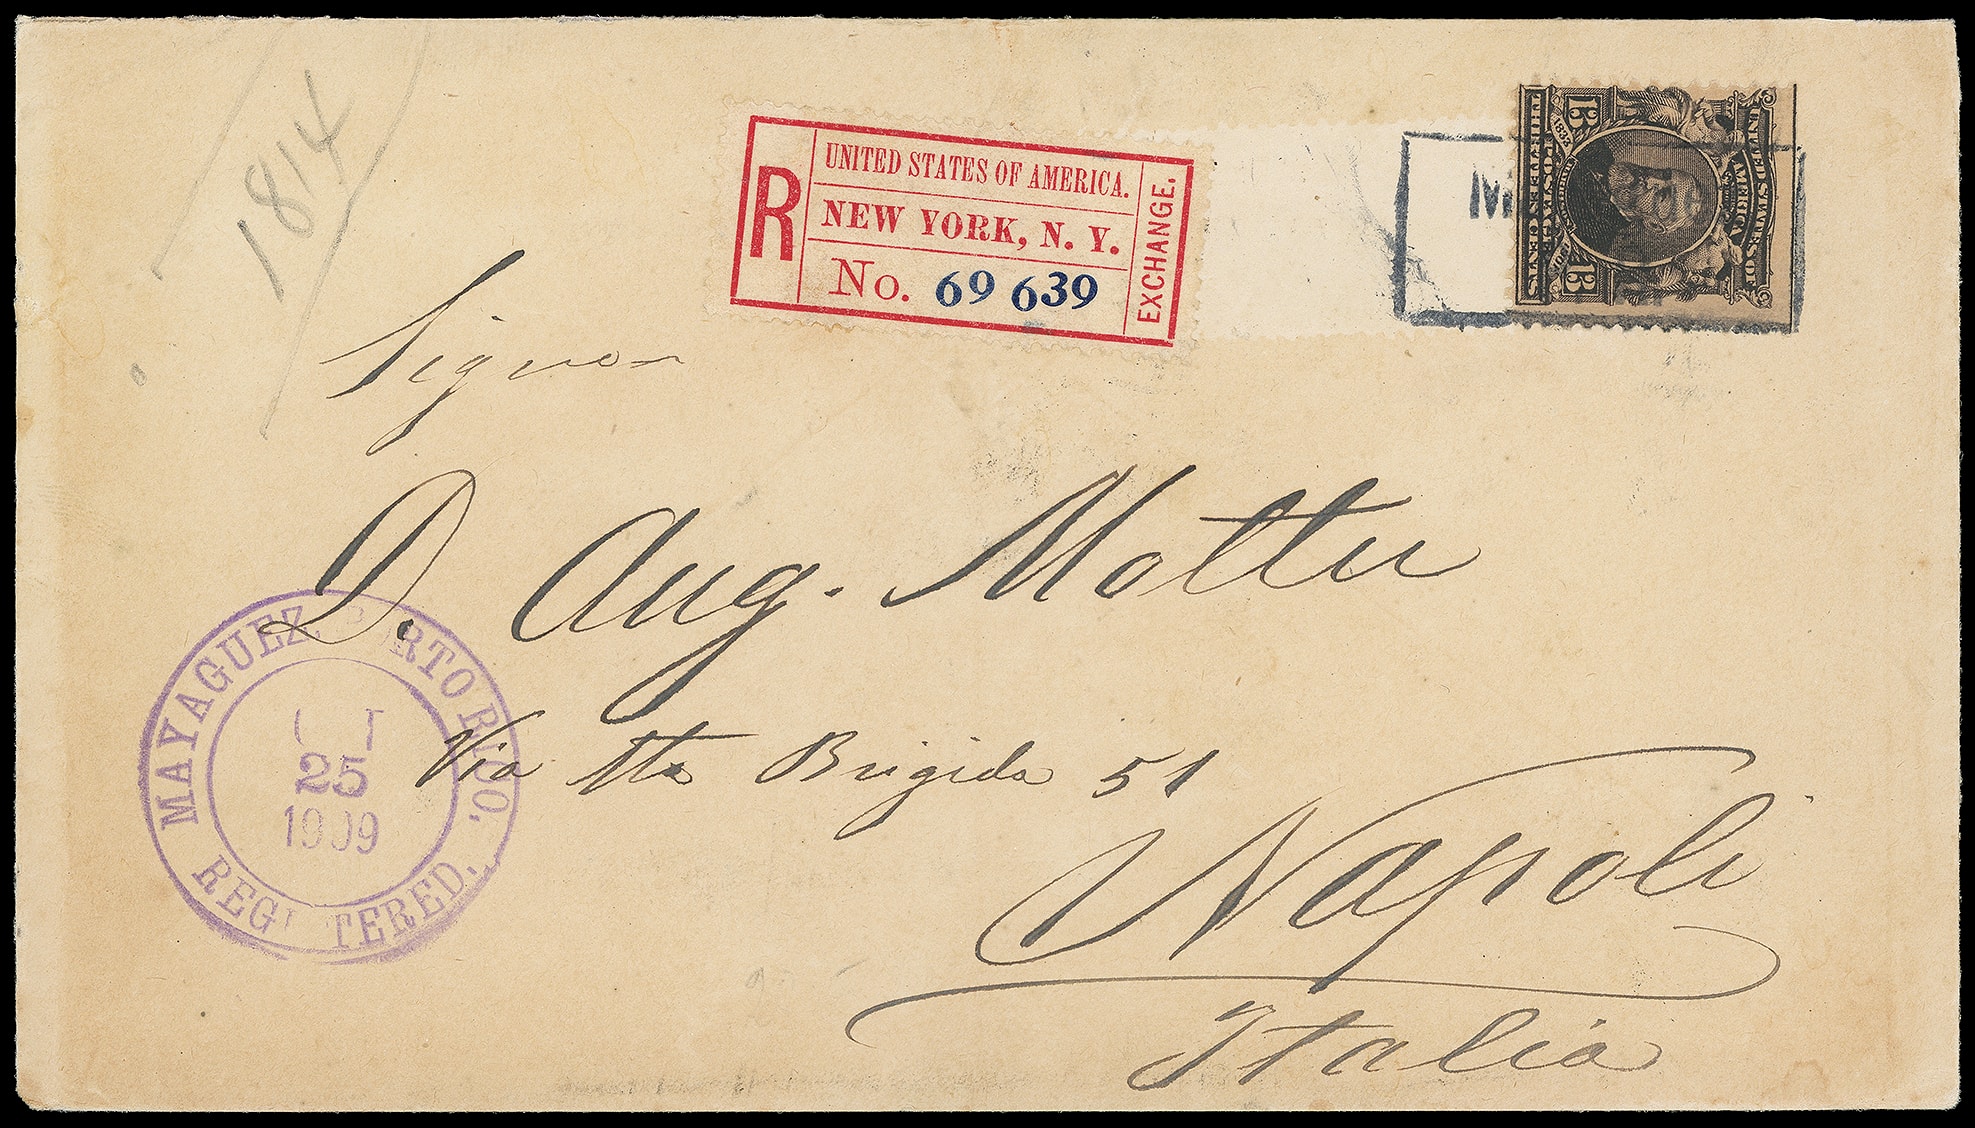 1814
R
UNITED STATES OF AMERICA.
NEW YORK, N. Y.
No. 69 639
EXCHANGE.
UNITED STATES OF
AMERICA
SERIES 1902
13 13
POSTAGE
THIRTEEN CENTS
Signor
D. Aug. Mottu
Via Sta Brigida 51
Napoli
Italia
MAYAGUEZ, PORTO RICO.
25
1909
REGISTERED.